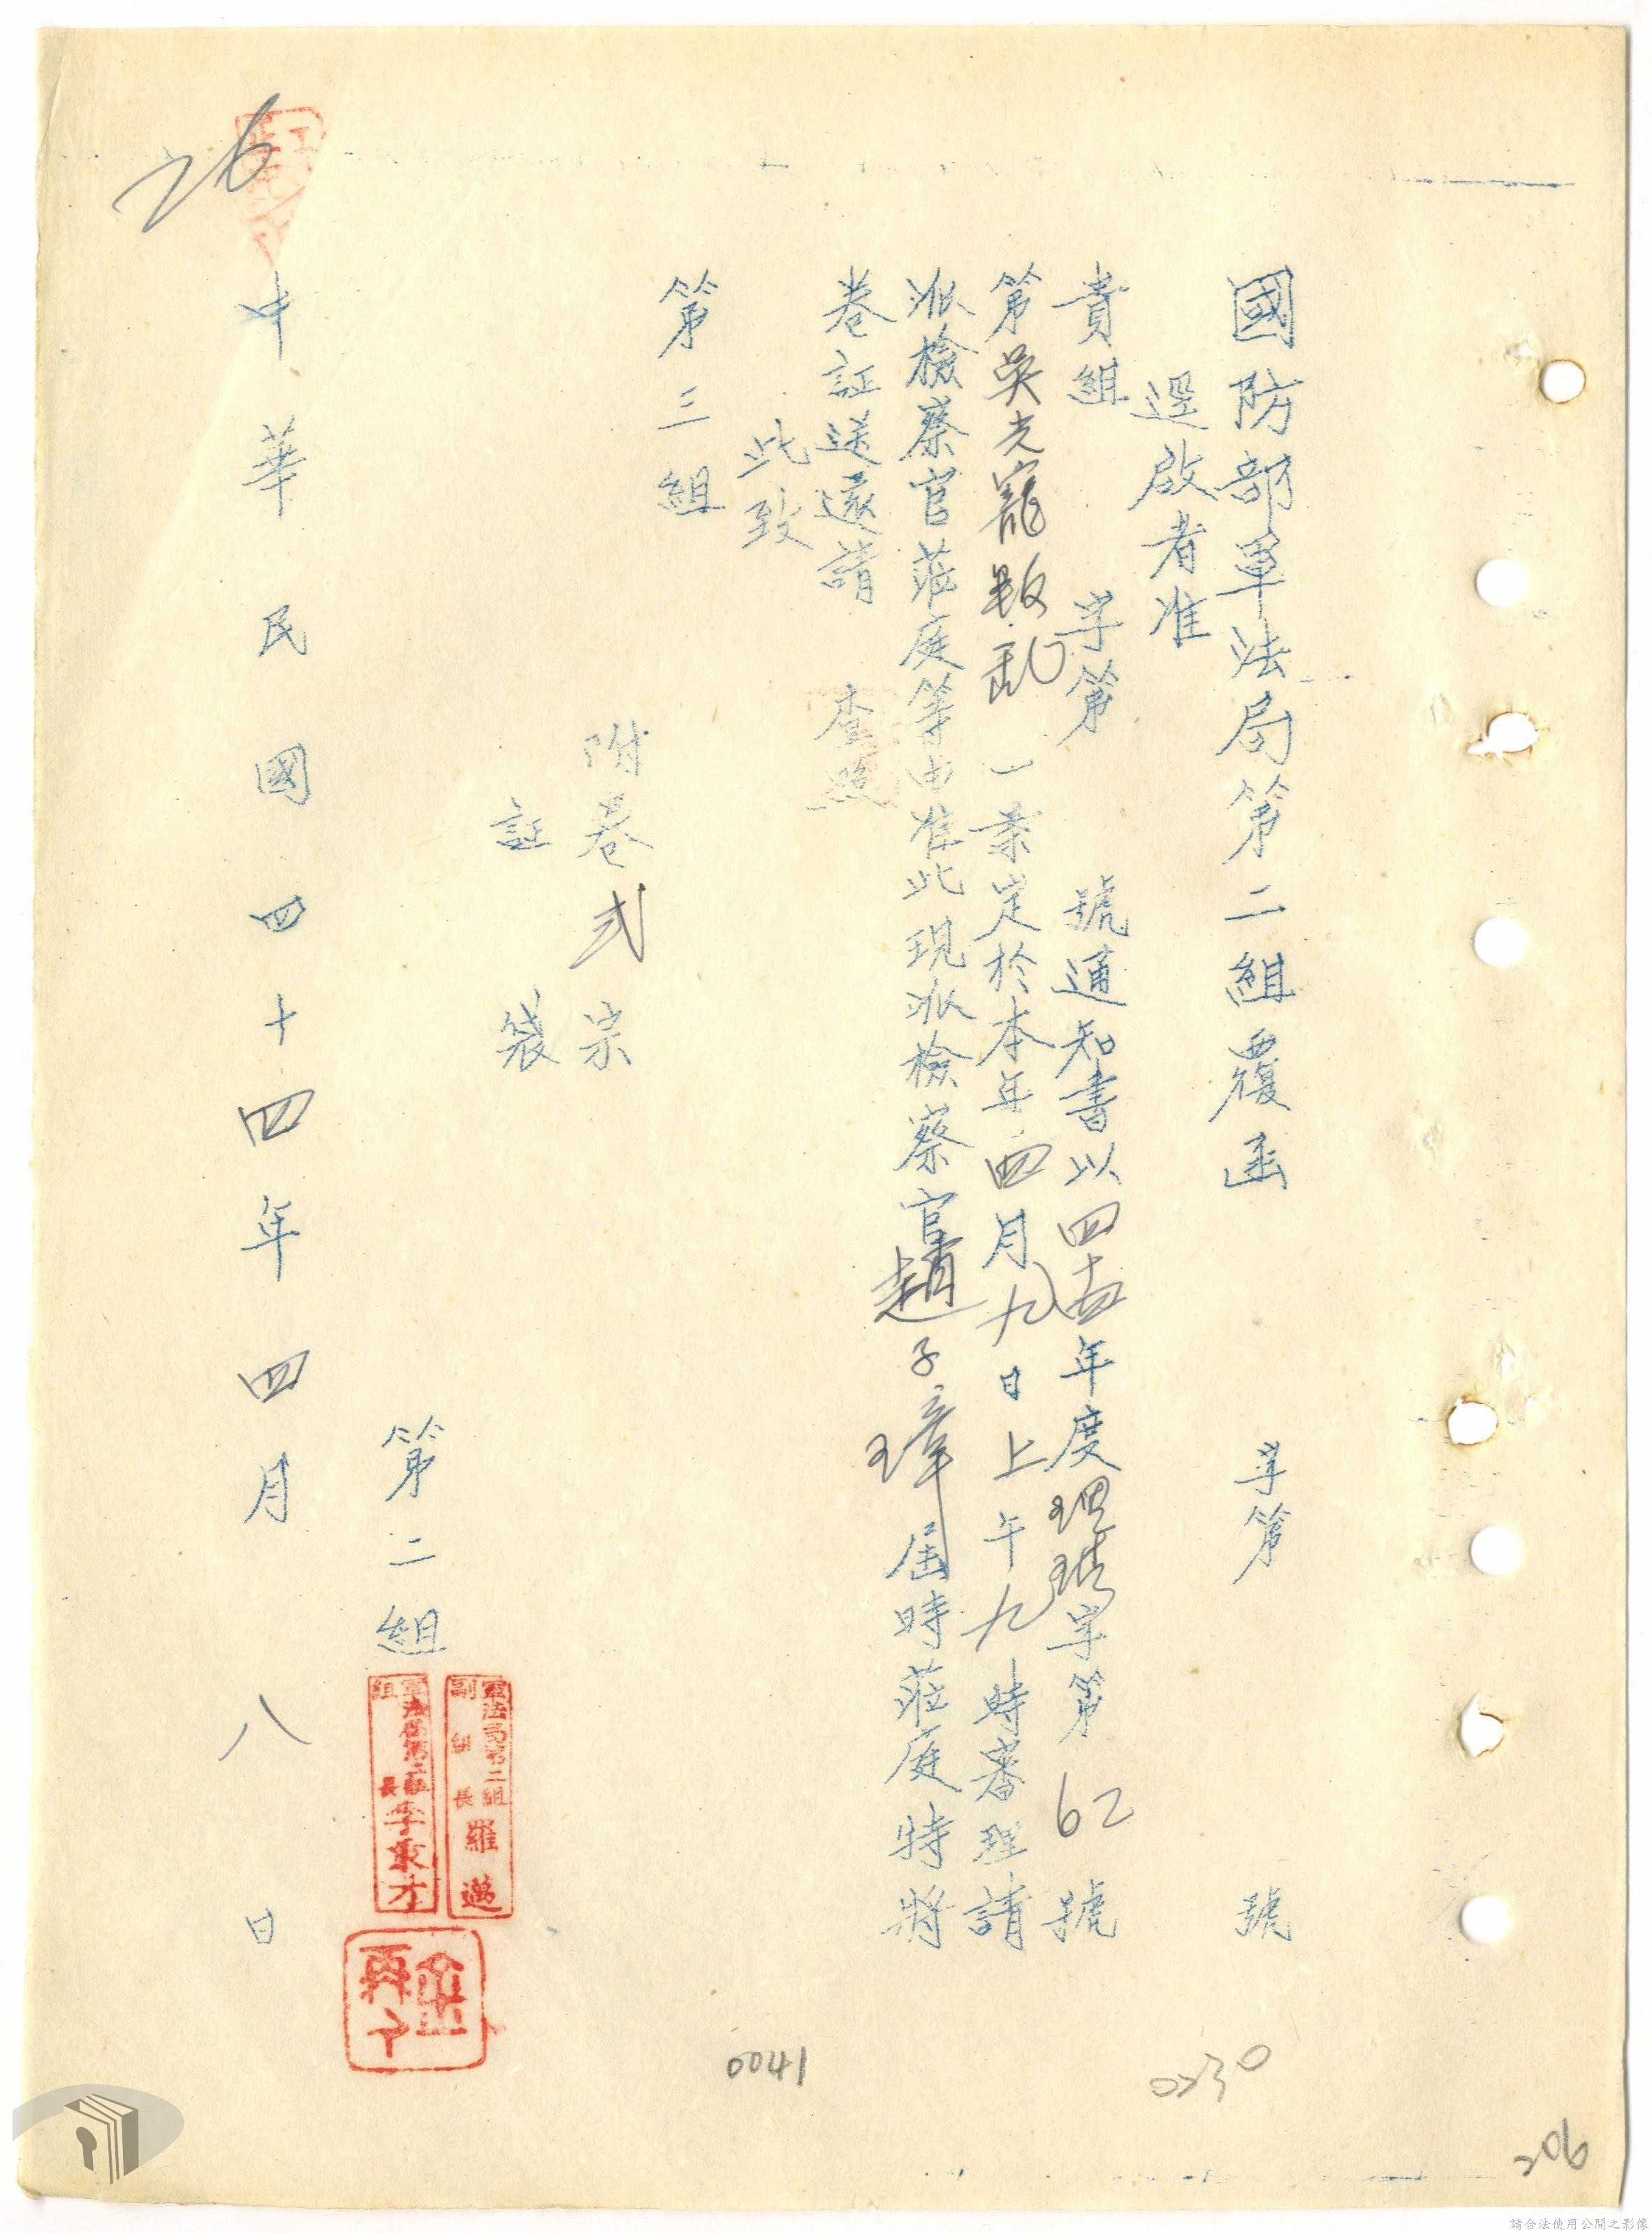 國防部軍法局第二組覆函 字第 號
逕啟者准
貴組 字第 號通知書以四十四年度理 字第 62 號
第 吳光 叛乱 一案定於本年四月九日上午九時審理請
派檢察官蒞庭等由准此現派檢察官趙子璋屆時蒞庭特將
卷証送還請 查照
此致
第三組
附卷弍宗
証 袋
第二組
軍法局第二組副組長 羅邁
軍法局第二組組長 李
中華民國四十四年四月八日
26
0041
0230
206
請合法使用公開之影像